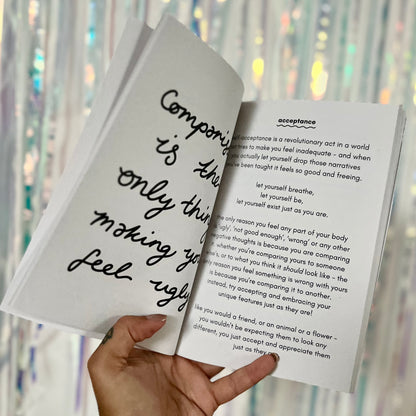 Comparis
is the
only thin
making you
feel ugly
acceptance
acceptance is a revolutionary act in a world
tries to make you feel inadequate – and when
you actually let yourself drop those narratives
been taught it feels so good and freeing.
let yourself breathe,
let yourself be,
let yourself exist just as you are.
the only reason you feel any part of your body
ugly', 'not good enough', 'wrong' or any other
negative thoughts is because you are comparing
whether you're comparing yours to someone
else's, or to what you think it should look like – the
reason you feel something is wrong with yours
is because you're comparing it to another.
instead, try accepting and embracing your
unique features just as they are!
like you would a friend, or an animal or a flower –
you wouldn't be expecting them to look any
different, you just accept and appreciate them
just as